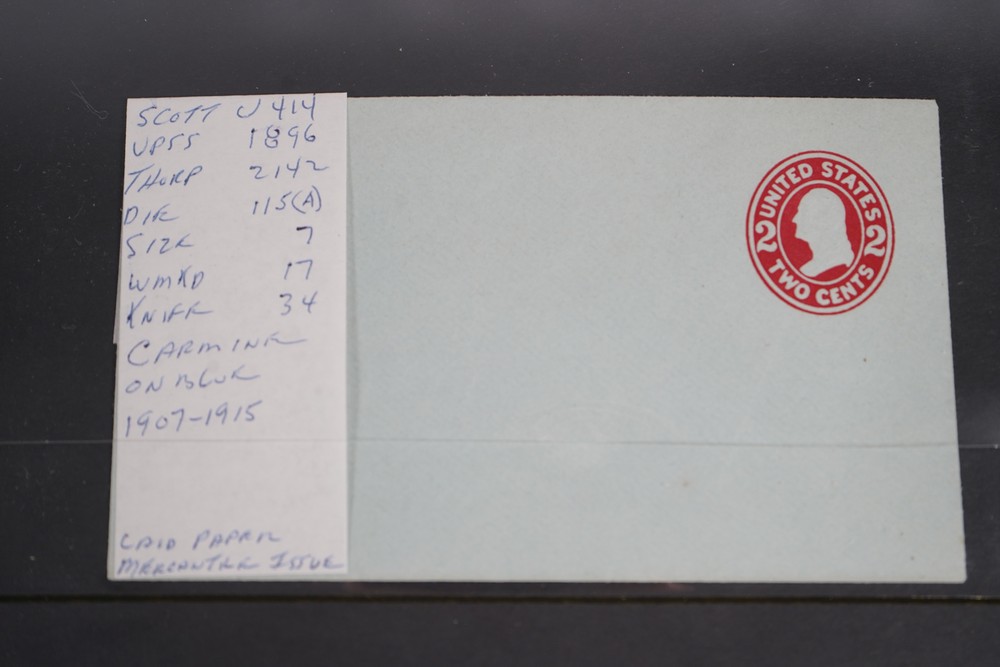 SCOTT U414
UPSS 1896
THORP 2142
DIE 115(A)
SIZE 7
WMKD 17
KNIFE 34
CARMINE
ON BLUE
1907-1915
LAID PAPER
MERCANTILE ISSUE
UNITED STATES
2 2
TWO CENTS